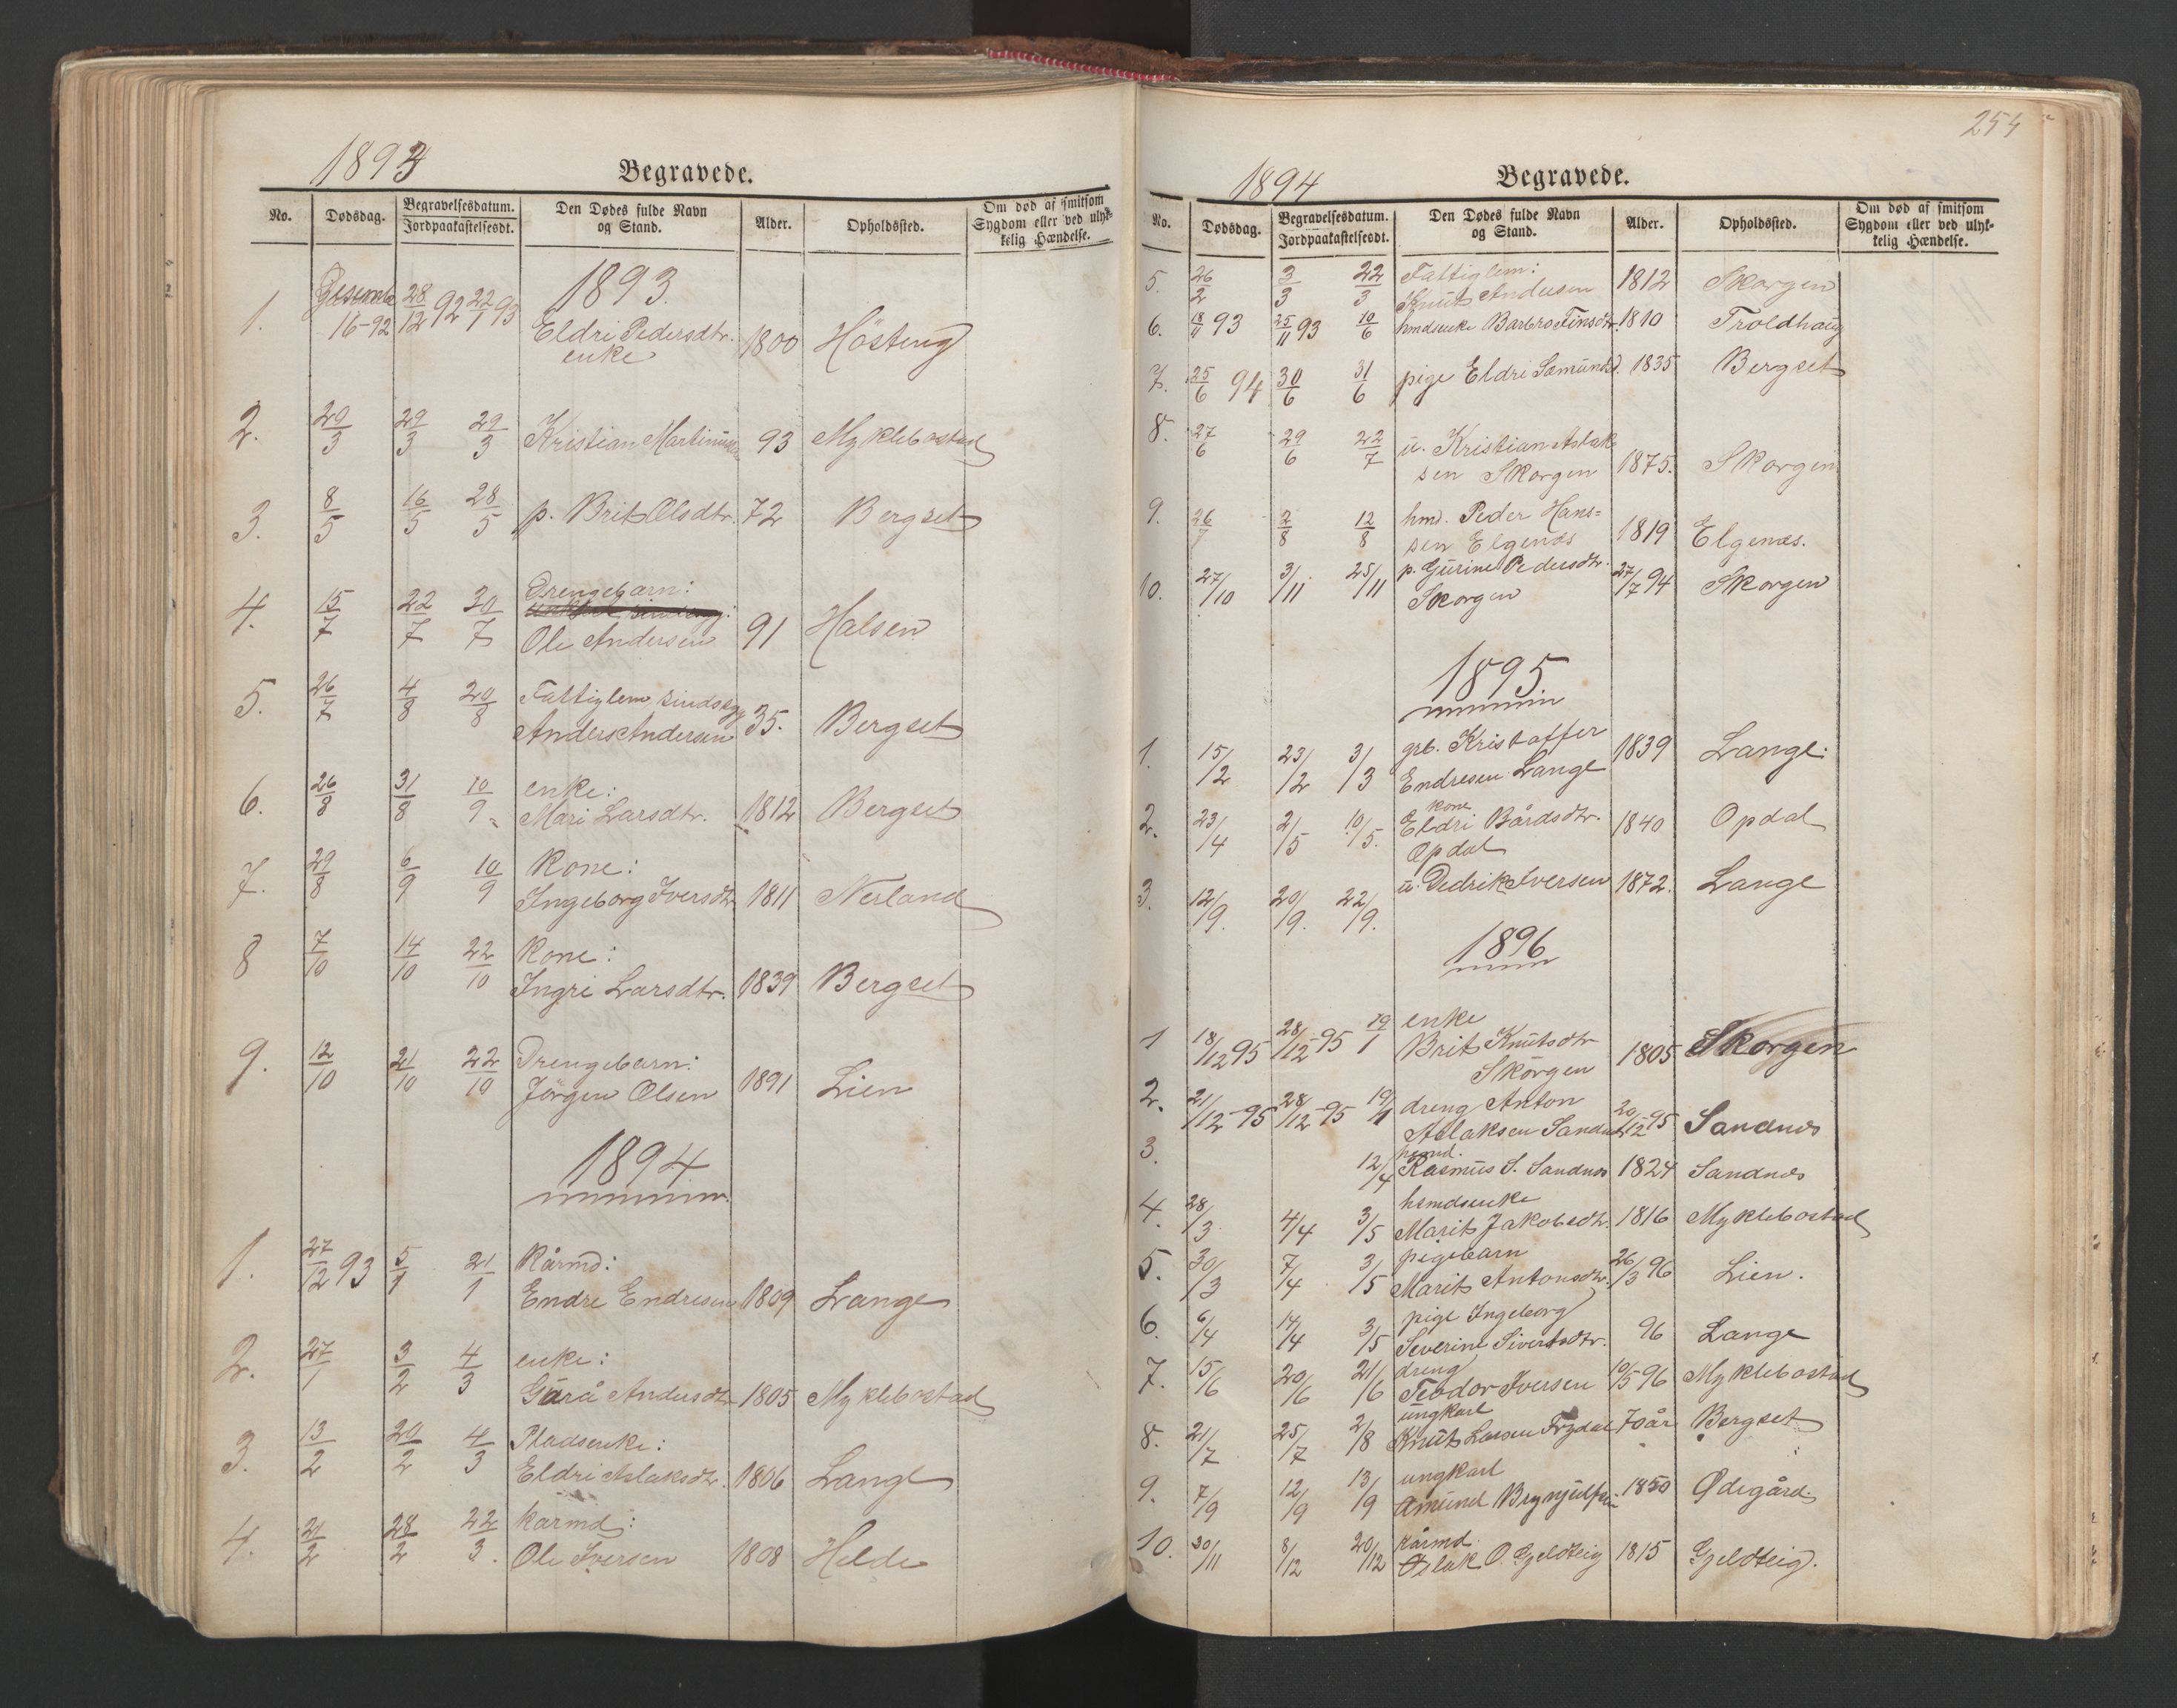 1893
Begravede.
No. Dødsdag. Begravelsesdatum. Jordpaakastelsesdt. Den Dødes fulde Navn og Stand. Alder. Opholdssted. Om død af smitsom Sygdom eller ved ulykkelig Hændelse.
1893.
1. 16-92 28/12 92 22/1 93 Eldri Pedersdtr. 1800 Hösteng
enke
2. 29/3 29/3 Kristian 93 Myklebostad
3. 8/5 16/5 28/5 p. Brit Olsdtr. 72 Bergset
Drengebarn:
4. 15/7 22/7 30/7 Ole Andersen 91 Halsen
5. 26/7 4/8 20/8 Fattiglem sindssyg
Anders Andersen 35. Bergset
6. 26/8 31/8 10/9 enke:
Mari Larsdtr. 1812 Bergset
7. 29/8 6/9 10/9 Kone:
Ingeborg Iversdtr 1811 Nerland
8 7/10 14/10 22/10 Kone:
Ingri Larsdtr. 1839 Bergset
9. 12/10 21/10 22/10 Drengebarn:
Jörgen Olsen 1891 Lien
1894
1. 27/12 93 5/1 21/1 Kårmd:
Endre Endresen 1809 Lange
2. 27/1 3/2 4/3 enke:
Gurå Andersdtr 1805 Myklebostad
3. 13/2 20/2 4/3 Pladsenke:
Eldri Aslaksdtr. 1806 Lange
4. 21/2 28/2 22/3. kårmd:
Ole Iversen 1808 Helde
254
1894
Begravede.
No. Dødsdag. Begravelsesdatum. Jordpaakastelsesdt. Den Dødes fulde Navn og Stand. Alder. Opholdssted. Om død af smitsom Sygdom eller ved ulykkelig Hændelse.
5. 26/2 3/3 22/3 Fattiglem:
Knut Andersen 1812 Skorgen
6. 18/11 93 25/11 93 10/6 hmdenke Barbro Finsdtr. 1810 Troldhaug
7. 25/6 94 30/6 31/6 pige Eldri Sæmundsd. 1835 Bergset
8. 27/6 29/6 22/7 u. Kristian Aslak
sen Skorgen 1875. Skorgen
9. 26/7 2/8 12/8 hmd. Peder Hans=
sen Elgenæs 1819 Elgenæs.
10. 27/10 3/11 25/11 p. Gurine Pedersdtr. 27/7 94 Skorgen
Skorgen
1895
1. 15/2 23/2 3/3 grb. Kristoffer 1839 Lange.
Endresen Lange
kone
2. 23/4 2/5 10/5. Eldri Bårdsdtr. 1840 Opdal
Opdal
3. 12/9. 20/9. 22/9. u. Dedrik Iversen 1872. Lange
1896
1 18/12 95 28/12-95 19/1 enke
Brit Knutsdtr 1805 Skorgen
Skorgen
2. 21/12-95 28/12-95 19/1 dreng Anton
Aslaksen Sandnes 20/12-95 Sandnes
3. 12/4 Rasmus S. Sandnes 1824 Sandnes
4. 28/3 4/4 3/5 hsmdsenke
Marit Jakobsdtr. 1816 Myklebostad
5. 30/3 7/4 3/5 pigebarn
Marit Antonsdtr. 26/3 96 Lien.
6. 6/4 14/4 3/5 pige Ingeborg
Severine Sivertsdtr. 96 Lange
7. 15/6 20/6 21/6 dreng
Teodor Iversen 10/5 96 Myklebostad
8. 21/7 25/7 2/8 ungkarl
Knut Larsen 70 år Bergset
9. 7/9 12/9 13/9 ungkarl
Amund 1850 Ødegård.
10. 30/11 8/12 20/12 kårmd
Aslak O. Gjeldteig 1815 Gjeldteig.